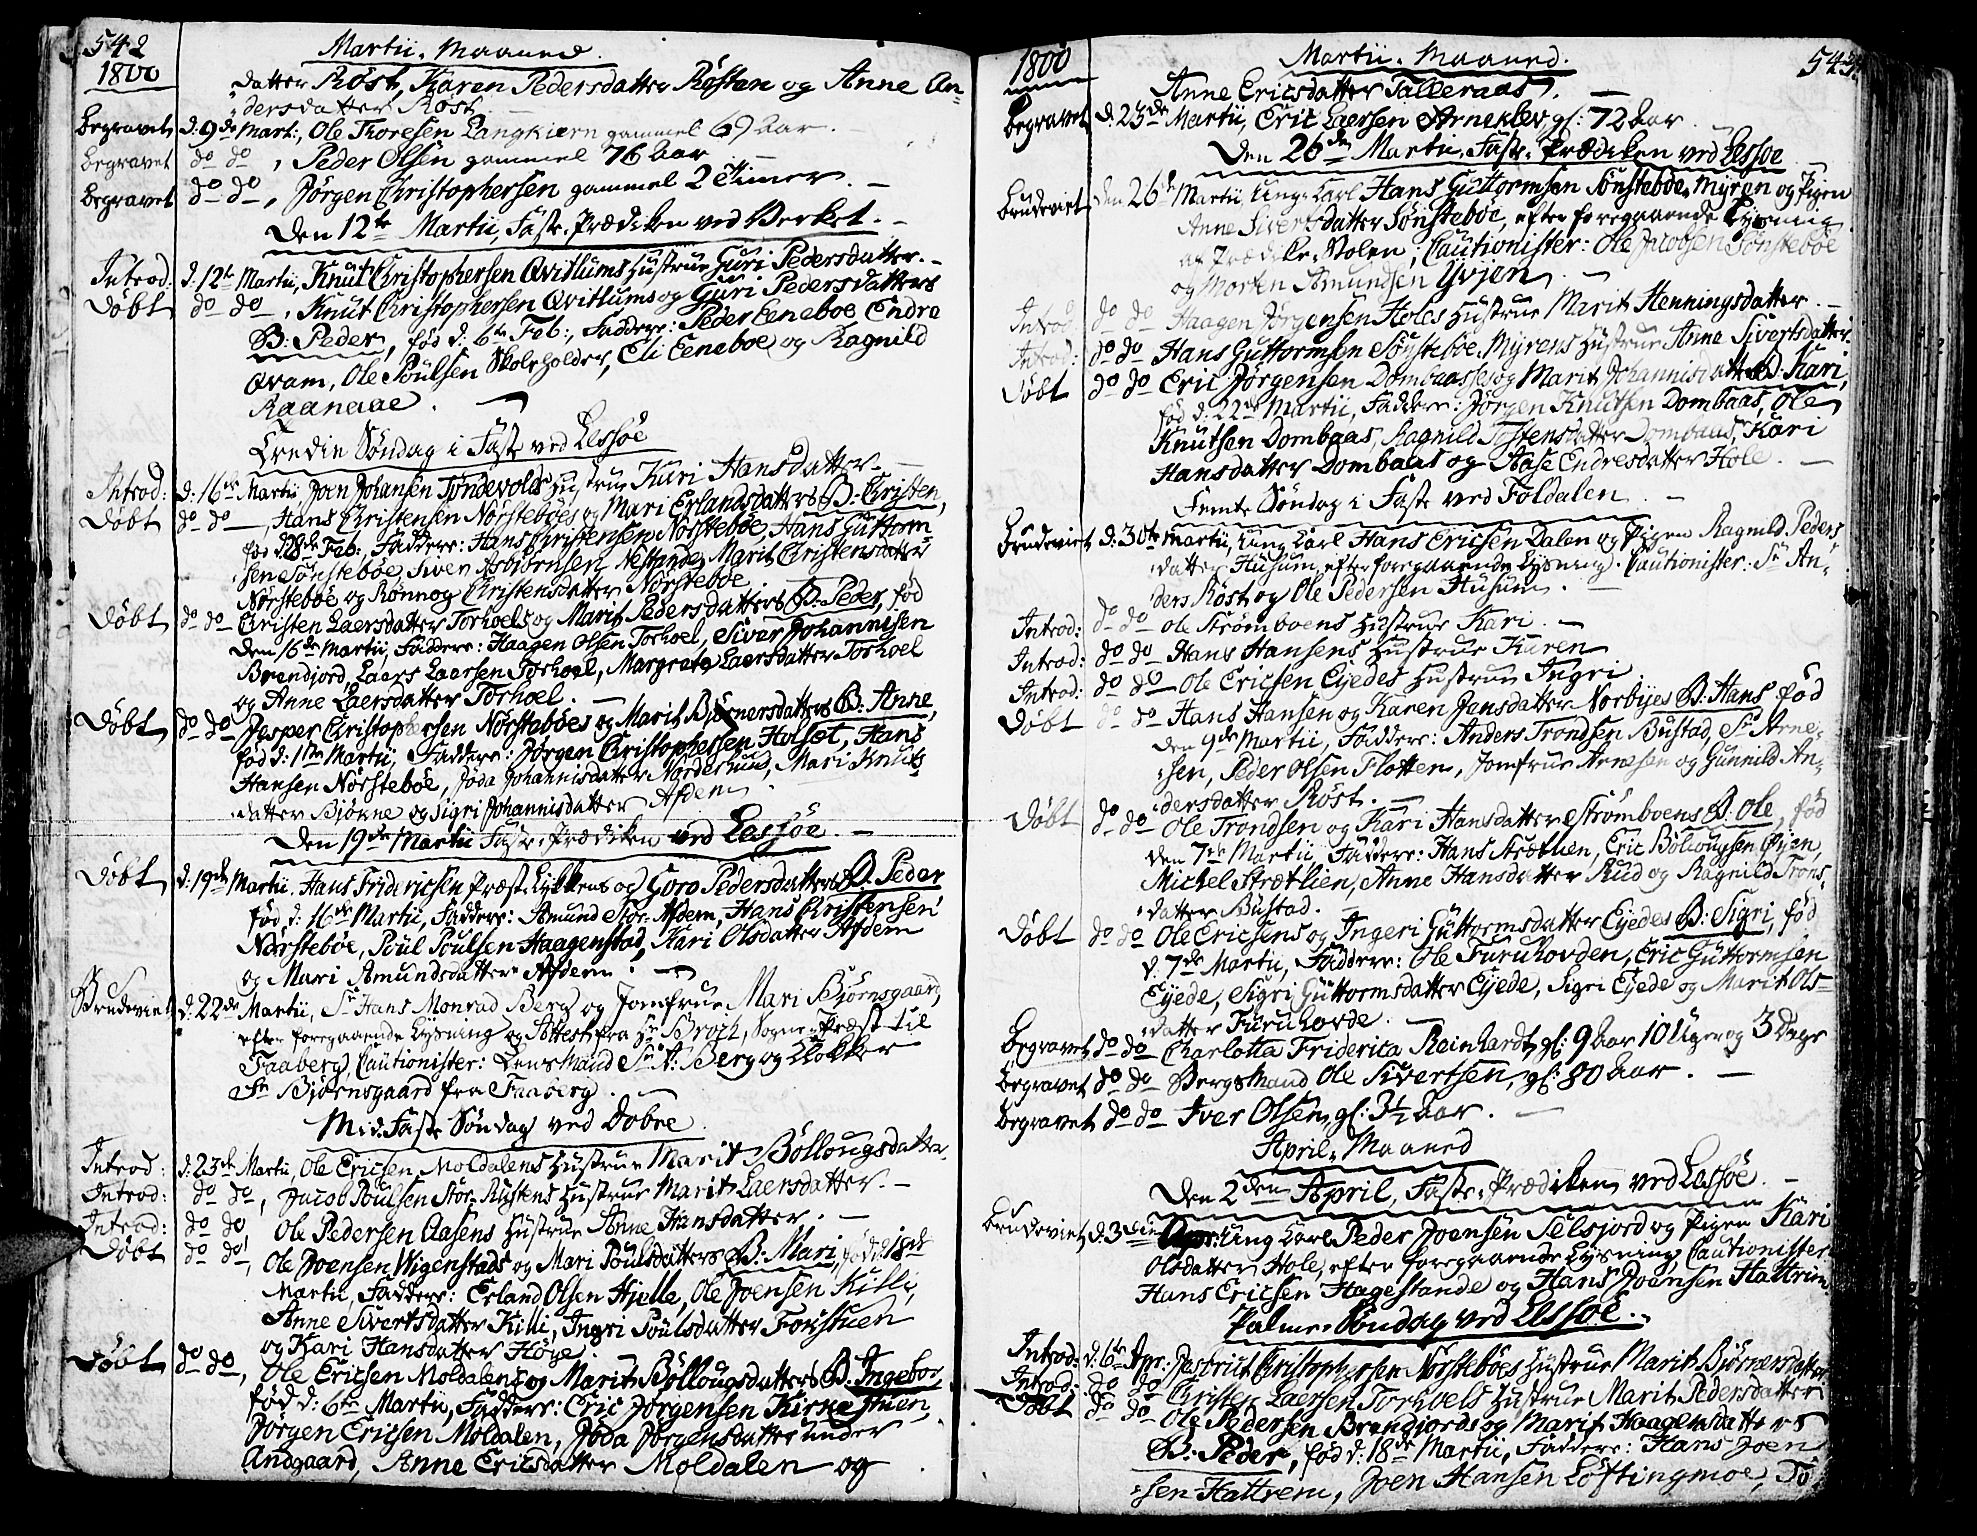 542
1800
Martii. Maaned.
datter Röst, Karen Pedersdatter Rösten og Anne An-
dersdatter Röst
Begravet d: 9de Mart:, Ole Thoresen Langkiern gammel 69 Aar. —
Begravet do do, Peder Olsen gammel 76 Aar —
Begravet do do, Jörgen Christophersen gammel 2 Timer. —
Den 12te Martii, Faste-Prædiken ved Verket. —
Introd: d: 12te Martii, Knut Christophersen Qvitlums Hustrue Guri Pedersdatter. —
Döbt do do, Knut Christophersen Qvitlums og Guri Pedersdatters
B: Peder, fød d: 6te Feb:, Faddere: Peder Eeneboe Endre
Qvam, Ole Poulsen Skoleholder, Eli Eeneboe og Ragnild
Raaneaae. —
Tredie Söndag i Faste ved Lessöe
Introd: d: 16de Martii Joen Johansen Töndevolds Hustrue Kari Hansdatter. —
Döbt do do —, Hans Christensen Norsteböes og Mari Erlandsdatters B: Christen,
fød d: 28de Feb:, Faddere: Hans Christensen Norsteböe, Hans Guttorm-
sen Sönsteböe, Siver Asbiörnsen Nestande, Marit Christensdatter
Norsteböe og Rönnog Christensdatter Norsteböe
Döbt do do Christen Laersdatter Torhoels og Marit Pedersdatters B: Peder, fød
den 16de Martii, Faddere: Haagen Olsen Torhoel, Siver Johannisen
Brendjord, Laers Laersen Torhoel, Margrete Laersdatter Torhoel
og Anne Laersdatter Torhoel. —
Döbt do do Jesper Christophersen Norsteböes og Marit Björnersdatters B: Anne,
fød d: 1ste Martii, Faddere: Jörgen Christophersen Holset, Hans
Hansen Norsteböe, Joda Johannisdatter Nordeshuus, Mari Knuts-
datter Biökne og Sigri Johannisdatter Afdem.
Den 19de Martii Faste-Prædiken ved Lessöe. —
Döbt d: 19de Martii. Hans Fridericsen Præstlykkens og Goro Pedersdatters B. Peder
fød d: 16de Martii, Faddere: Amund Stor-Afdem, Hans Christensen
Norsteböe, Poul Poulsen Haagenstad, Kari Olsdatter Afdem
og Mari Amundsdatter Afdem. —
Brudeviet d: 22de Martii, Sr Hans Monrad Berg og Jomfrue Mari Björnsgaard,
efter foregaaende Lysning og Attest fra Hr Broch, Sogne-Præst til
Faaberg, Cautionister: Lensmand Sr N: Berg og Klokker
Sr Björnsgaard fra Faaberg. —
Mid-Faste Söndag ved Dovre
Introd: d: 23de Martii, Ole Ericsen Moldalens Hustrue Marit Böllougsdatter.
Introd: do do, Jacob Poulsen Stor-Rustens Hustrue Marit Laersdatter. —
Introd: do do Ole Pedersen Aasens Hustrue Anne Hansdatter. —
Döbt do do, Ole Joensen Wigenstads og Mari Poulsdatters B: Mari, fød d: 18de
Martii, Faddere: Erland Olsen Hjelle, Ole Joensen Killi,
Anne Sivertsdatter Killi, Ingri Poulsdatter Forstuen
og Kari Hansdatter Höye. —
Döbt do do, Ole Ericsen Moldalens og Marit Böllougsdatters B: Ingebor,
fød d: 6te Martii, Faddere: Eric Jörgensen Kirkestuen,
Jörgen Ericsen Moldalen, Joda Jörgensdatter under
Andgaard, Anne Ericsdatter Moldalen og
1800
Martii. Maaned.
543.
Anne Ericsdatter Talleraas. —
Begravet d: 25de Martii, Eric Laersen Arneklev gl: 72 Aar. —
Den 26de Martii, Faste-Prædiken ved Lessöe
Brudeviet den 26de Martii, Ung-Carl Hans Guttormsen Sönsteböe-Myren og Pigen
Anne Sivertsdatter Sönsteböe, efter foregaaende Lysning
af Prædike-Stolen; Cautionister: Ole Jacobsen Sönsteböe
og Morten Amundsen Yvjen. —
Introd: do do Haagen Jörgensen Holes Hustrue Marit Henningsdatter. —
Introd: do do Hans Guttormsen Sönsteböe-Myrens Hustrue Anne Sivertsdatter.
Döbt do do Eric Jörgensen Dombaases og Marit Johannisdatters B: Kari,
fød d: 22de Martii, Faddere: Jörgen Knutsen Dombaas, Ole
Knutsen Dombaas, Ragnild Tostensdatter Dombaas, Kari
Hansdatter Dombaas og Aase Endresdatter Hole. —
Femte Söndag i Faste ved Foldalen. —
Brudeviet d: 30te Martii, Ung Carl Hans Ericsen Dalen og Pigen Ragnild Peders
datter Husum, efter foregaaende Lysning. Cautionister: Sr An-
ders Röst og Ole Pedersen Husum. —
Introd: do do Ole Strömboens Hustrue Kari. —
Introd: do do Hans Hansens Hustrue Karen
Introd: do do Ole Ericsen Eyedes Hustrue Ingri.
Döbt do do Hans Hansen og Karen Jansdatter Norbyes B: Hans, fød
den 9de Martii, Faddere: Anders Trondsen Bustad, Sr Arne-
sen, Peder Olsen Flotten, Jomfrue Arnesen og Gunnild An-
dersdatter Röst. —
Döbt do do Ole Trondsen og Kari Hansdatter Strömboens B: Ole, fød
den 7de Martii, Faddere: Hans Strætlien, Eric Böllougsen Öyen,
Michel Strætlien, Anne Hansdatter Rud og Ragnild Trons-
datter Bustad. —
Döbt do do Ole Ericsens og Ingeri Guttormsdatter Eyedes B: Sigri, fød
d. 7de Martii, Faddere: Ole Furuhovden, Eric Guttormsen
Eyede, Sigri Guttormsdatter Eyede, Sigri Eyede og Marit Ols-
datter Furuhovde. —
Begravet do do Charlotta Friderica Reinhardt, gl: 9 Aar 10 Uger og 3 Dage
Begravet do do Bergsmand Ole Sivertsen, gl: 80 Aar. —
Begravet do do Iver Olsen, gl: 3½ Aar. —
April. Maaned
Den 2den April, Faste-Prædiken ved Lessöe. —
Brudeviet d. 3die Apr: Ung Carl Peder Joensen Selsjord og Pigen Kari
Olsdatter Hole, efter foregaaende Lysning, Cautionister
Hans Ericsen Hagestande og Hans Joensen Hattrem
Palme-Söndag ved Lessöe. —
Introd: d: 6te Apr: Christophersen Norsteböes Hustrue Marit Björnersdatter
Introd: do do Christen Laersen Torhoels Hustrue Marit Pedersdatter
Döbt do do Ole Pedersen Brendjords og Marit Haagensdatters
B: Peder, fød d: 18de Martii, Faddere: Hans Joen
sen Hattrem, Joen Hansen Löftingmoe, To